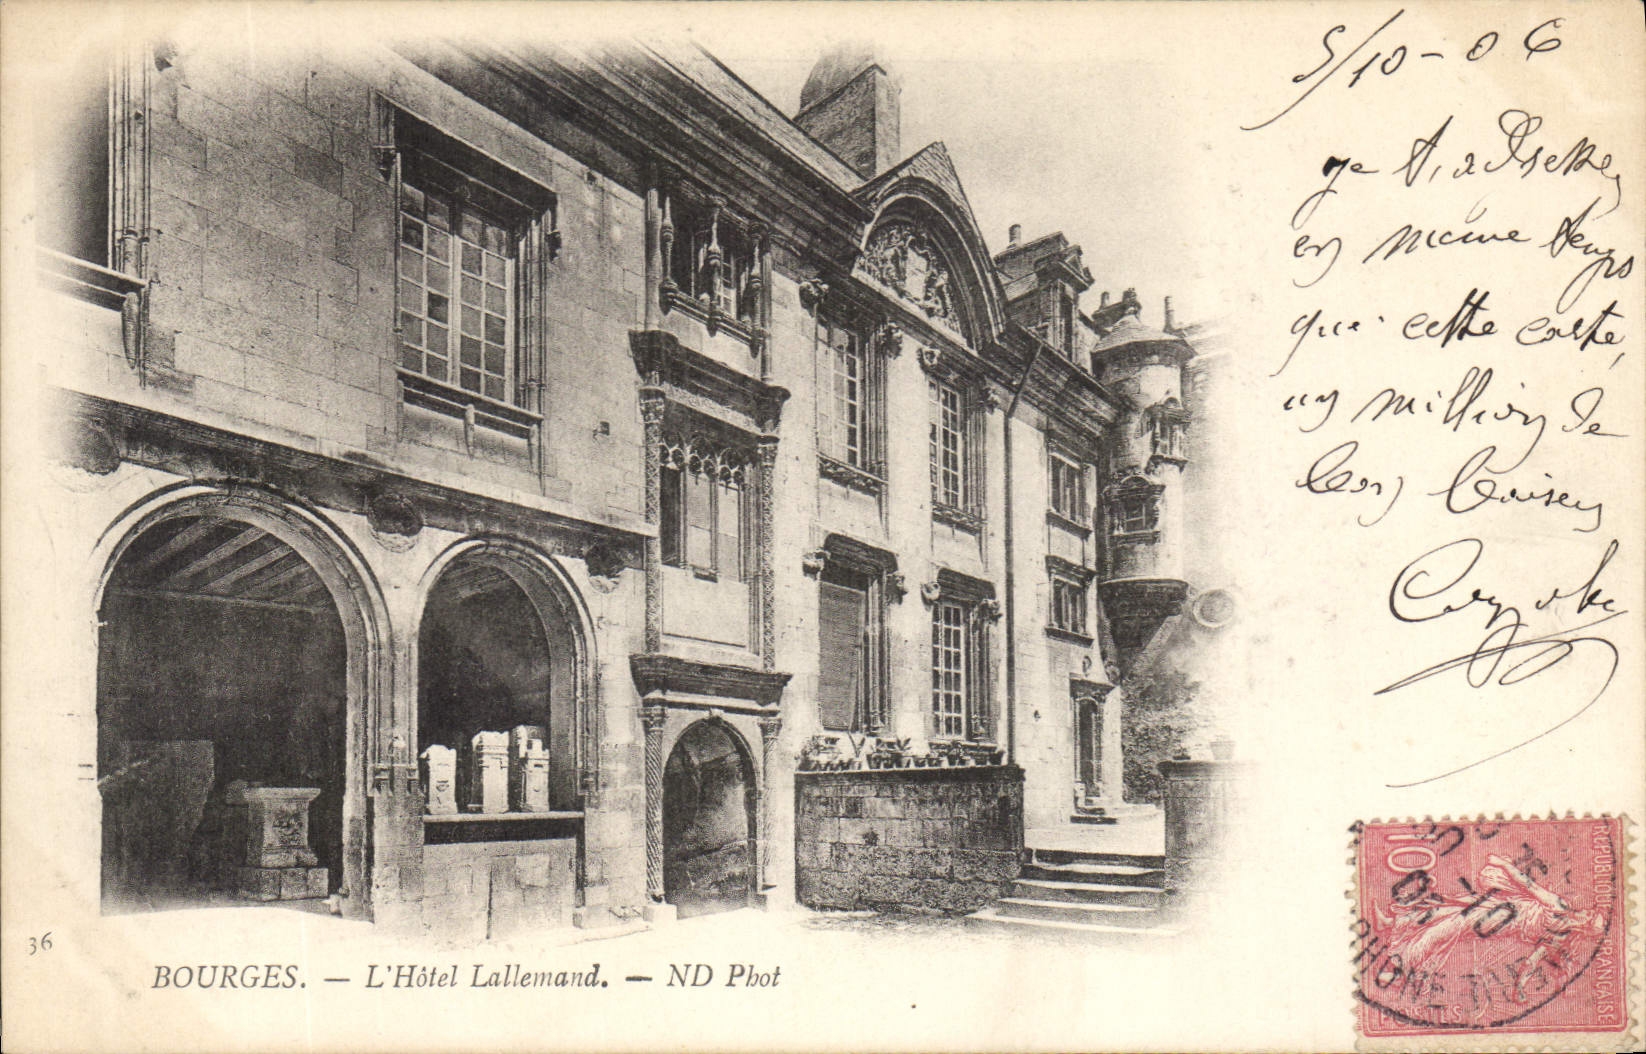 5/10-06
je t'adresse
en même temps
que cette carte,
un million de
bons baisers
36
BOURGES. — L'Hôtel Lallemand. — ND Phot
10
REPUBLIQUE FRANÇAISE
POSTES